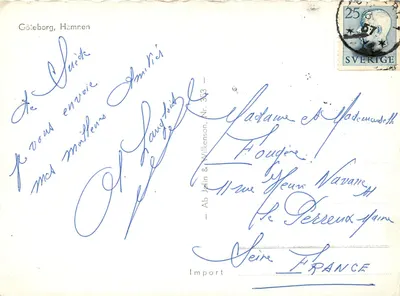 Göteborg, Hamnen
De Suède
je vous envoie
mes meilleures Amitiés
Ab Julin & Wilkemont, Nr. 303
Import
25
57
SVERIGE
Madame et Mademoiselle
Fougère
11 rue Henri Navarre
Le Perreux Marne
Seine FRANCE